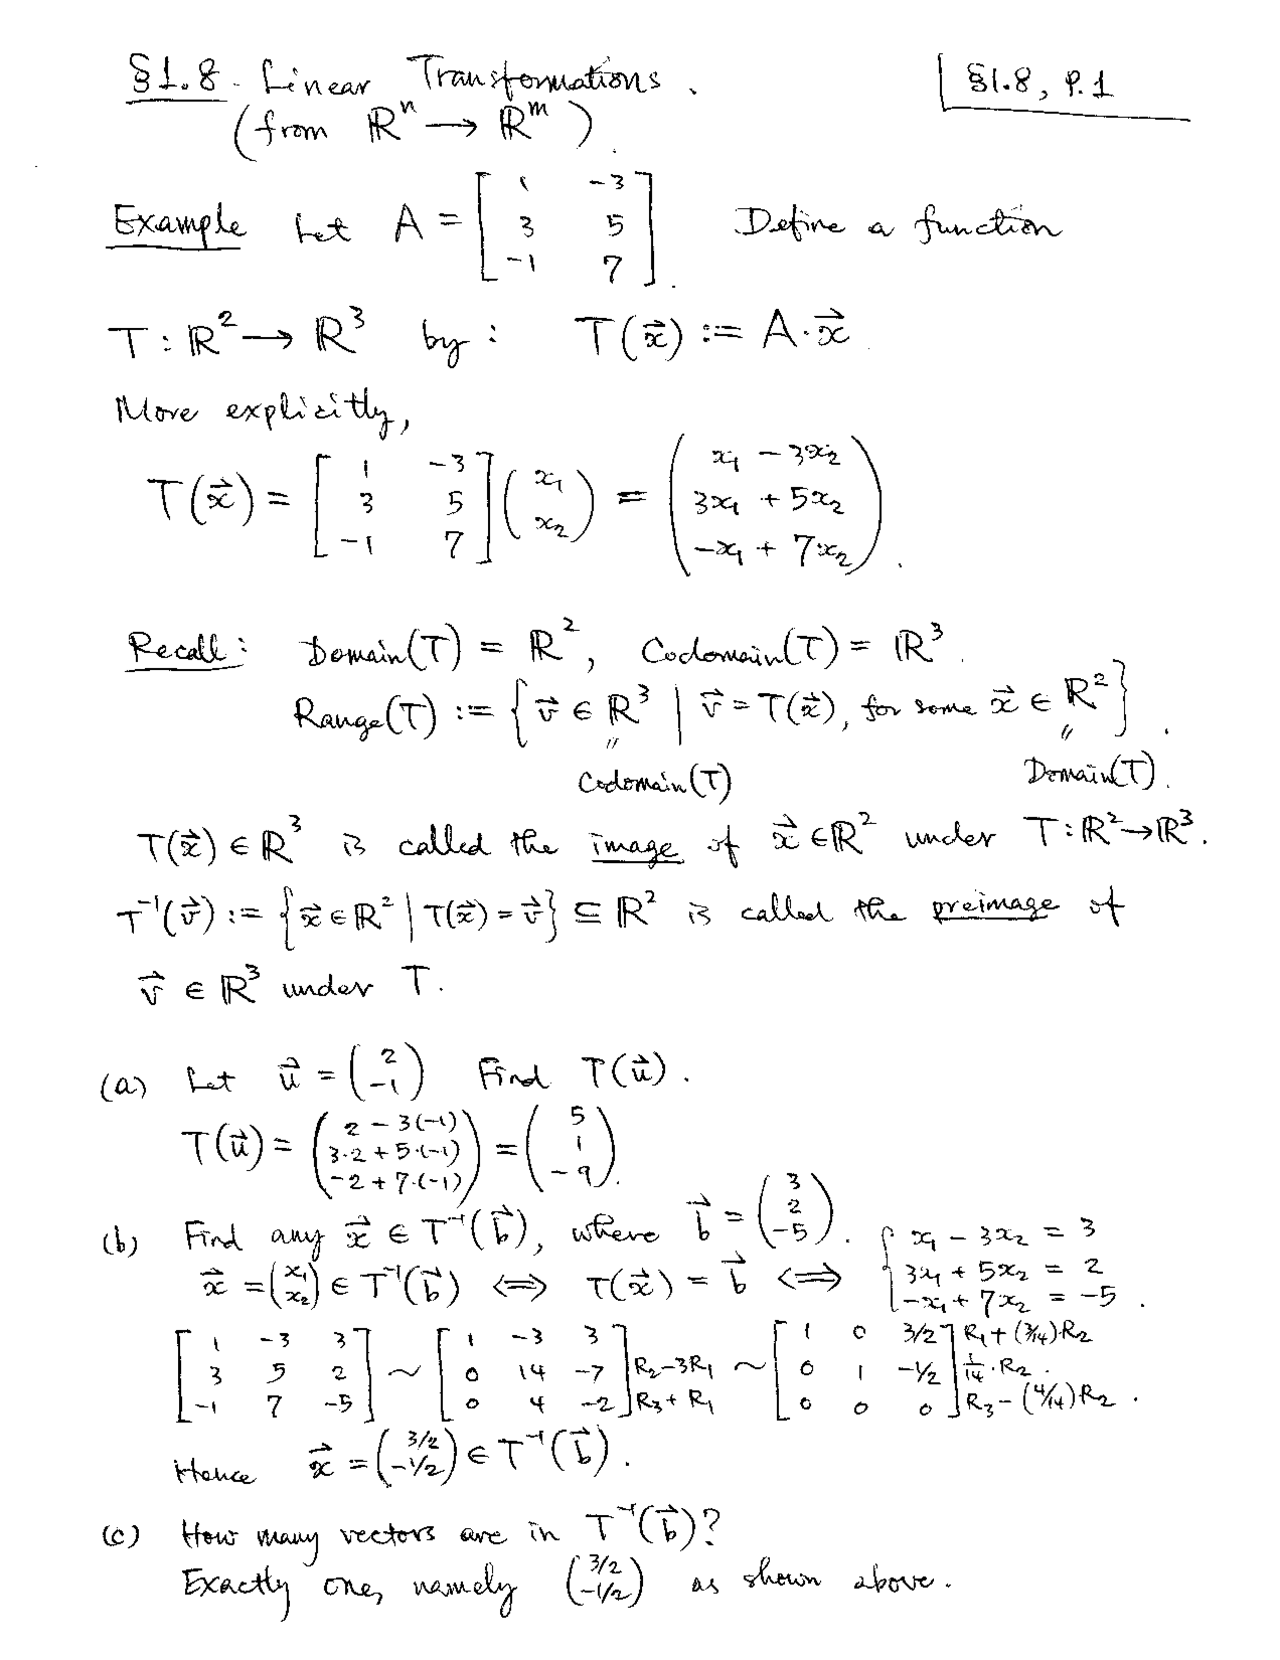 §1.8. Linear Transformations.
§1.8, P.1
(from ℝⁿ → ℝᵐ).
Example Let A = [1 -3; 3 5; -1 7]. Define a function
T : ℝ² → ℝ³ by : T(x⃗) := A·x⃗.
More explicitly,
T(x⃗) = [1 -3; 3 5; -1 7] (x₁; x₂) = (x₁ - 3x₂; 3x₁ + 5x₂; -x₁ + 7x₂).
Recall: Domain(T) = ℝ², Codomain(T) = ℝ³.
Range(T) := {v⃗ ∈ ℝ³ | v⃗ = T(x⃗), for some x⃗ ∈ ℝ²}.
" "
Codomain(T) Domain(T).
T(x⃗) ∈ ℝ³ is called the image of x⃗ ∈ ℝ² under T : ℝ² → ℝ³.
T⁻¹(v⃗) := {x⃗ ∈ ℝ² | T(x⃗) = v⃗} ⊆ ℝ² is called the preimage of
v⃗ ∈ ℝ³ under T.
(a) Let u⃗ = (2; -1) Find T(u⃗).
T(u⃗) = (2 - 3(-1); 3·2 + 5·(-1); -2 + 7·(-1)) = (5; 1; -9).
(b) Find any x⃗ ∈ T⁻¹(b⃗), where b⃗ = (3; 2; -5).
x⃗ = (x₁; x₂) ∈ T⁻¹(b⃗) ⟺ T(x⃗) = b⃗ ⟺ {x₁ - 3x₂ = 3; 3x₁ + 5x₂ = 2; -x₁ + 7x₂ = -5.
[1 -3 3; 3 5 2; -1 7 -5] ~ [1 -3 3; 0 14 -7; 0 4 -2] R₂-3R₁; R₃+R₁ ~ [1 0 3/2; 0 1 -1/2; 0 0 0] R₁+(3/14)R₂; 1/14·R₂.; R₃-(4/14)R₂.
Hence x⃗ = (3/2; -1/2) ∈ T⁻¹(b⃗).
(c) How many vectors are in T⁻¹(b⃗)?
Exactly one, namely (3/2; -1/2) as shown above.